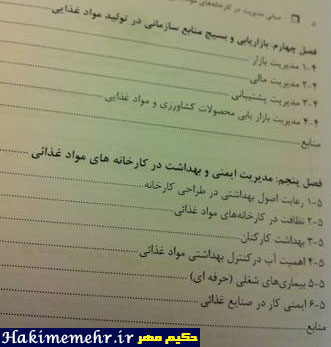 مبانی مدیریت در کارخانه‌های
فصل چهارم: بازاریابی و بسیج منابع سازمانی در تولید مواد غذایی
۴-۱ مدیریت بازار
۴-۲ مدیریت مالی
۴-۳ مدیریت پشتیبانی
۴-۴ مدیریت بازار یابی محصولات کشاورزی و مواد غذایی
منابع
فصل پنجم: مدیریت ایمنی و بهداشت در کارخانه های مواد غذائی
۵-۱ رعایت اصول بهداشتی در طراحی کارخانه
۵-۲ نظافت در کارخانه‌های مواد غذائی
۵-۳ بهداشت کارکنان
۵-۴ اهمیت آب درکنترل بهداشتی مواد غذائی
۵-۵ بیماری‌های شغلی (حرفه ای)
۵-۶ ایمنی کار در صنایع غذائی
منابع
حکیم مهر
Hakimemehr.ir